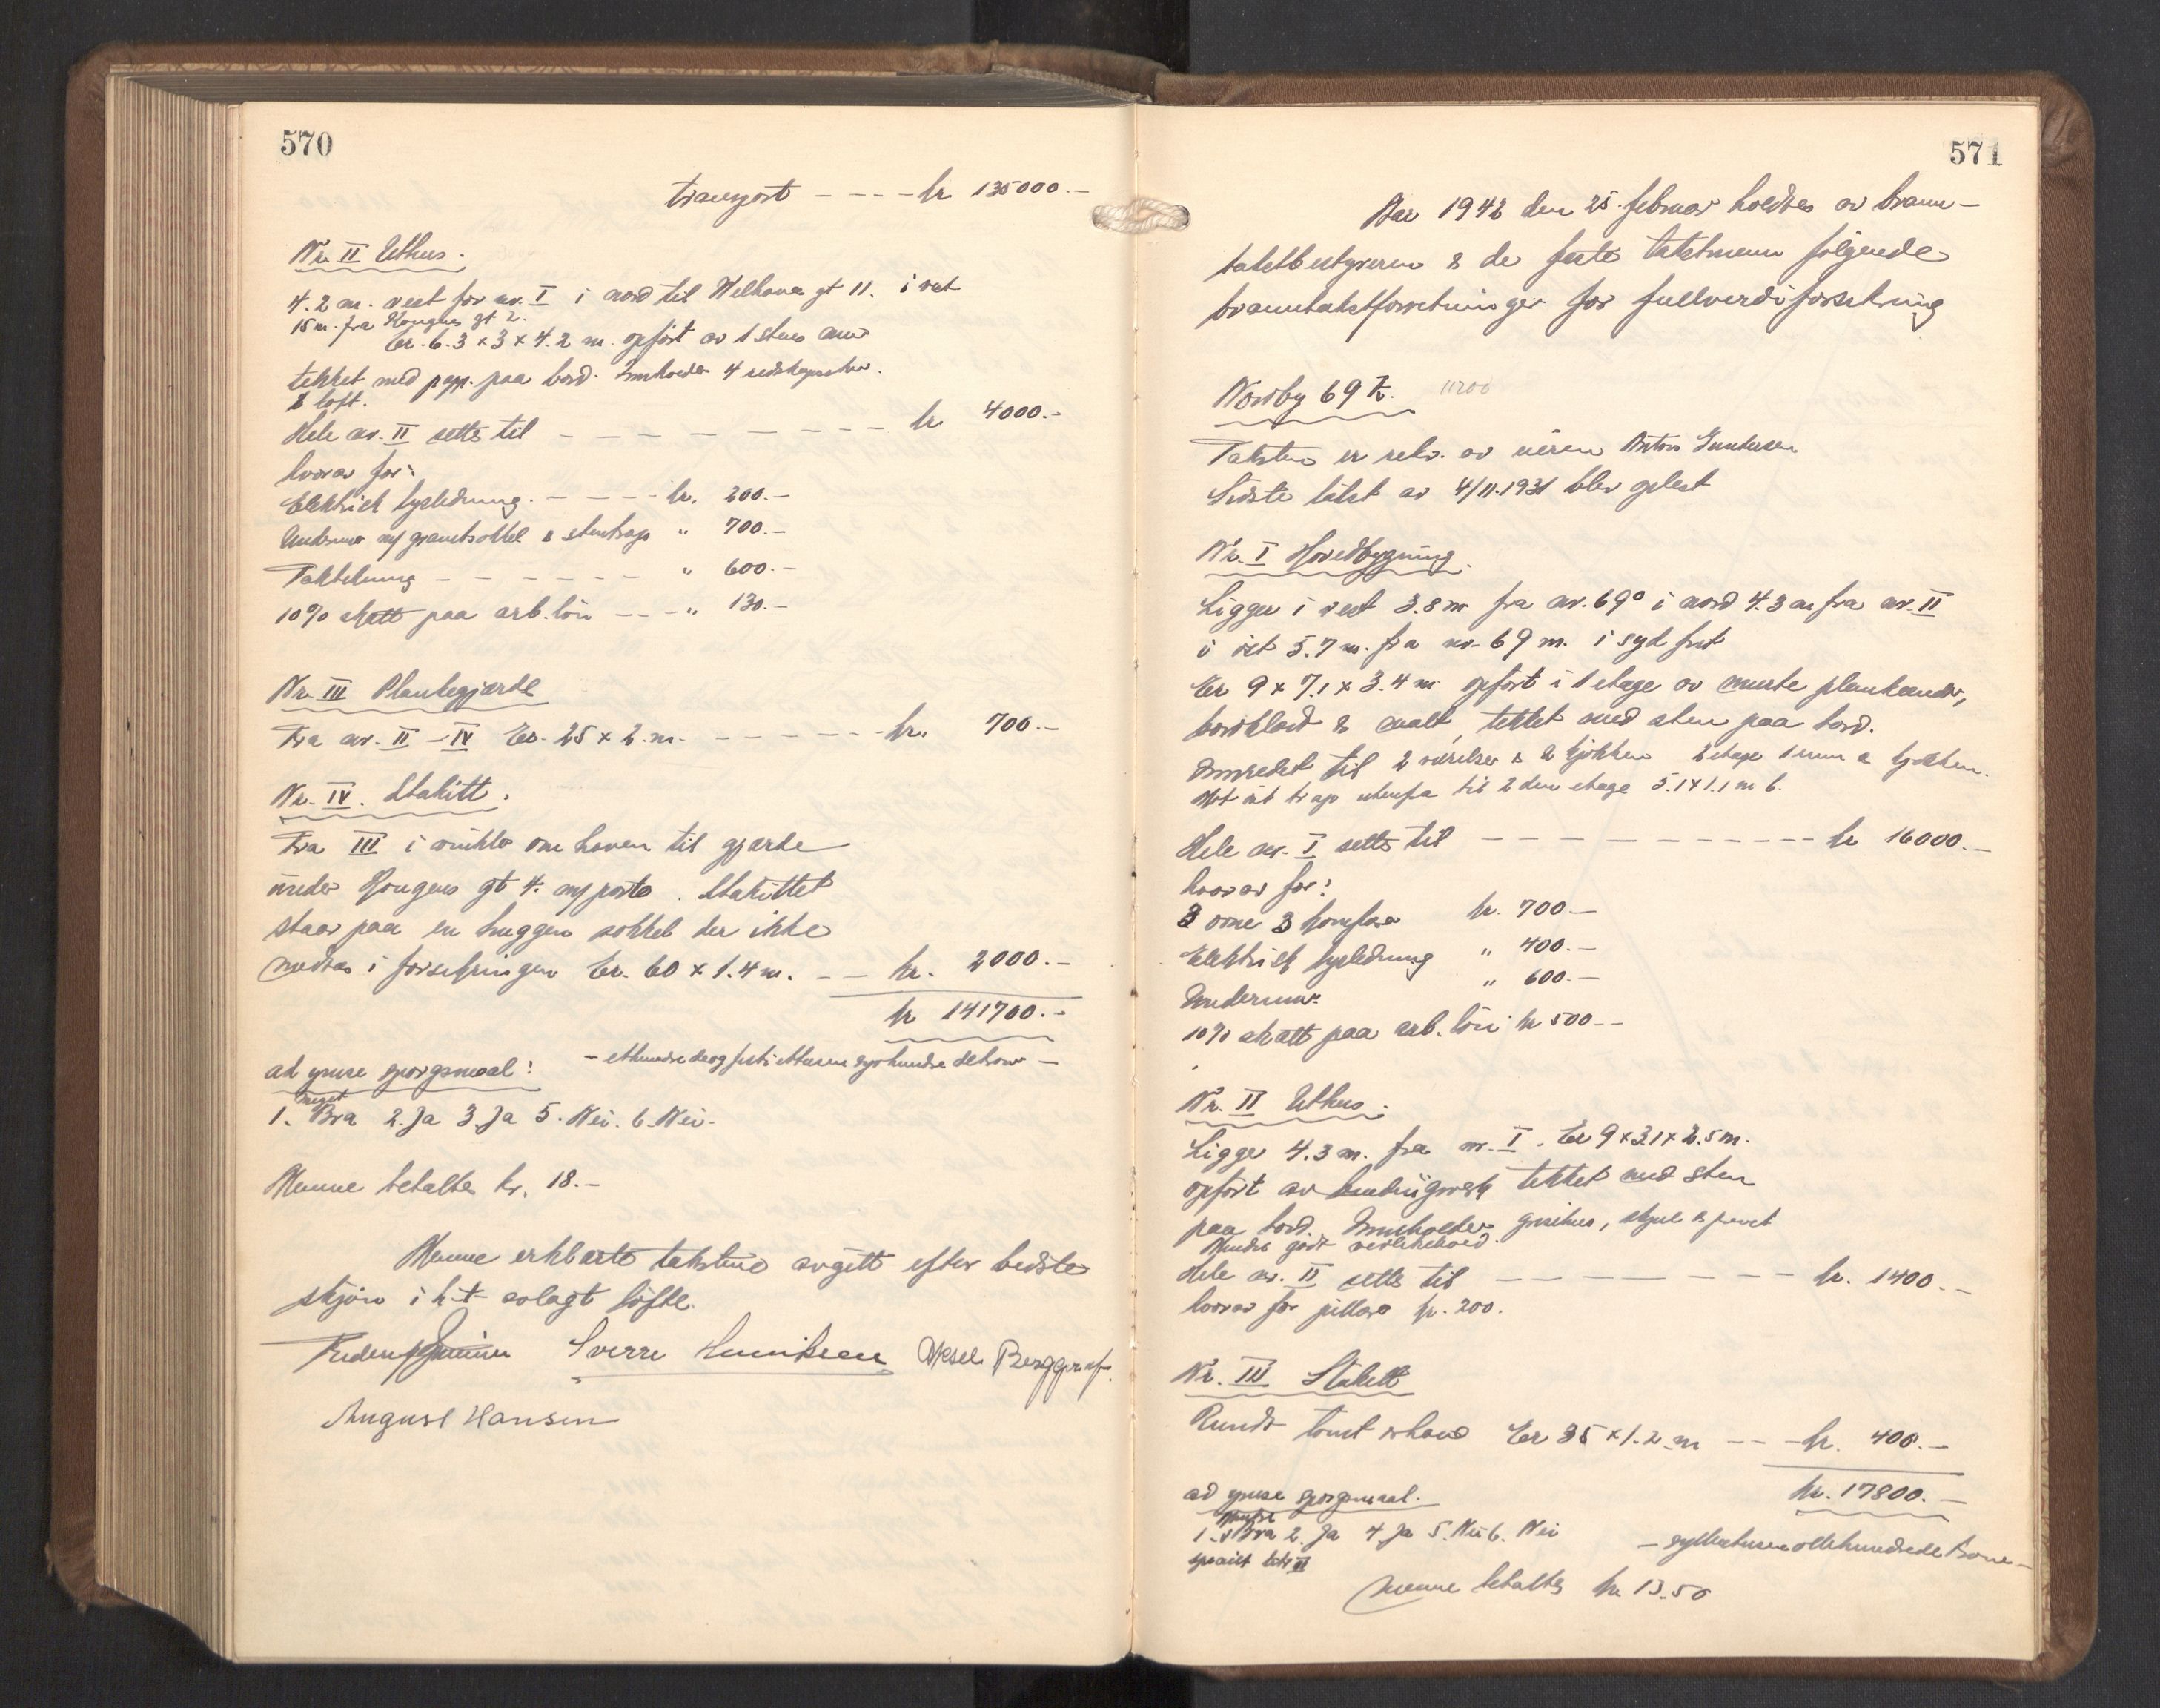 570
transport - - - - kr 135000.-
Nr. II Uthus.
4.2 m. vest for nr. I i nord til Welhavens gt 11. i vest
15 m. fra Kongens gt 2.
Er. 6.3 x 3 x 4.2 m. opført av 1 stens mur
tekket med papp. paa bord. Inneholder 4 redskapsboder
& loft.
Hele nr. II settes til - - - - - - - - - kr 4000.-
hvorav for:
Elektrisk lysledning. - - - - kr. 200.-
Undermur m/ granitsokkel & stentrapp " 700.-
Taktekning - - - - - - " 600.-
10% skatt paa arb. lön - - - " 130.-
Nr. III Plankegjærde
Fra nr. II - IV Er. 25 x 2. m. - - - - - - kr. 700.-
Nr. IV. Stakitt.
Fra III i vinkle om haven til gjærde
Kongens gt 4. m/ porte. Stakittet
staar paa en huggen sokkel der ikke
medtas i forsikringen Er. 60 x 1.4 m. - - kr. 2000.-
kr 141700.-
ad ymse spørgsmaal: - etthundredeogførtiettusensyvhundrede kroner -
meget
1. Bra 2. Ja 3. Ja 5. Nei. 6. Nei.
Menne betaltes kr. 18.-
Menne erklærte takstene avgitt efter bedste
skjøn i h.t. avlagt löfte.
Sverre Henriksen Aksel Berggraf.
August Hansen
571
Aar 1942 den 25. februar holdtes av brann-
takstbestyreren & de faste takstmenn følgende
branntakstforretninger for fullverdiforsikring
Nordby 69 k. 11200
Taksten er rekv. av eieren Anton Gundersen
Sidste takst av 4/11.1931 blev oplest
Nr. I Hovedbygning.
Ligger i vest 3.8 m fra nr. 69 o i nord 4.3 m fra nr. II
i öst 5.7 m. fra nr. 69 m. i syd frit
Er 9 x 7.1 x 3.4 m opført i 1 etage av murte plankeender,
bordklædt & malt, tekket med sten paa bord.
Innredet til 2 værelser & 2 kjökken 2 etage 1 rum & kjökken.
Mot öst trap utenfra til 2 den etage 5.1 x 1.1 m b.
Hele nr. I settes til - - - - - - - - - - kr 16000.-
hvorav for:
3 ovne 3 komfyrer kr. 700.-
Elektrisk lysledning " 400.-
Undermur " 600.-
10% skatt paa arb. lön kr 500.-
Nr. II Uthus.
Ligger 4.3 m. fra nr. I. Er 9 x 3.1 x 2.5 m.
opført av bindingsverk tekket med sten
paa bord. Inneholder grisehus, skjul & privet
Mindre godt vedlikehold.
Hele nr. II settes til - - - - - - - - kr. 1400.-
hvorav for pillarer kr. 200.
Nr. III Stakitt
Rundt tomt & have Er 35 x 1.2 m - - - kr. 400.-
kr. 17800.-
ad ymse spørgsmaal. - syttentusenottehundrede kroner -
Mindre
1. Bra 2. Ja 4 Ja 5. Nei 6. Nei
specielt
Menne betaltes kr 13.50